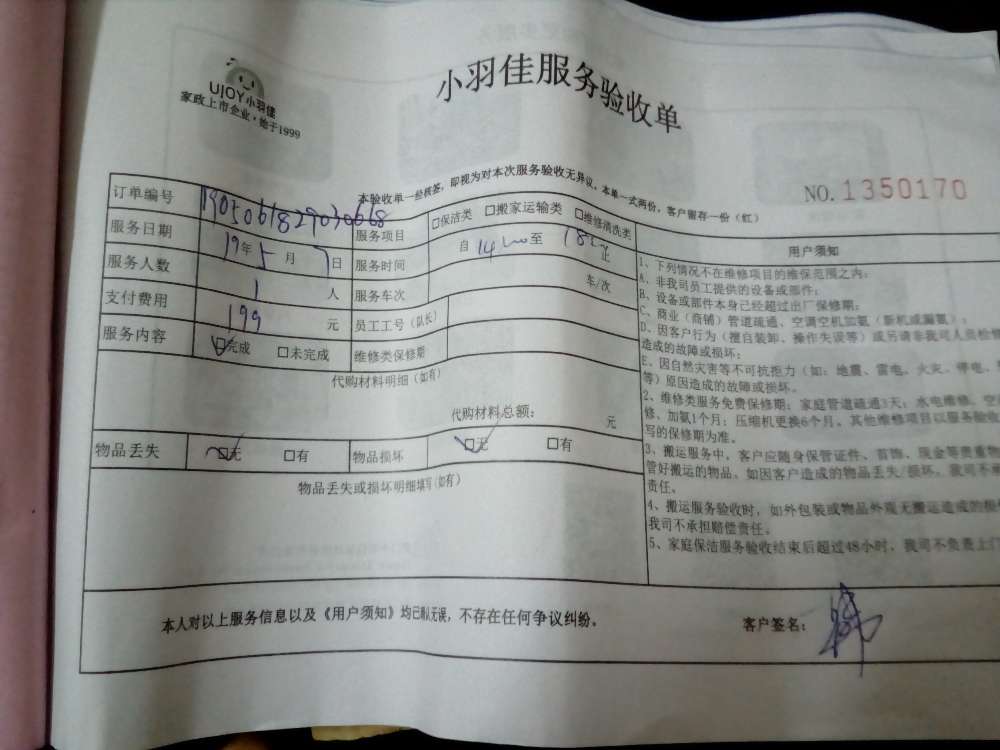 UJOY小羽佳
家政上市企业·始于1999
小羽佳服务验收单
本验收单一经核签，即视为对本次服务验收无异议。本单一式两份，客户留存一份（红）
NO.1350170
订单编号
服务项目 □保洁类 □搬家运输类 □维修清洗类
服务日期 19年5月7日 服务时间 自14:00至18:00止
服务人数 1人 服务车次 车/次
支付费用 199元 员工工号（队长）
服务内容 ☑完成 □未完成 维修类保修期
代购材料明细（如有）
代购材料总额： 元
物品丢失 ☑无 □有 物品损坏 ☑无 □有
物品丢失或损坏明细填写（如有）
用户须知
1、下列情况不在维修项目的维保范围之内：
A、非我司员工提供的设备或部件；
B、设备或部件本身已经超过出厂保修期；
C、商业（商铺）管道疏通、空调空机加氨（新机或漏氨）；
D、因客户行为（擅自装卸、操作失误等）或另请非我司人员检修
造成的故障或损坏；
E、因自然灾害等不可抗拒力（如：地震、雷电、火灾、停电、
等）原因造成的故障或损坏。
2、维修类服务免费保修期：家庭管道疏通3天；水电维修、空
修、加氨1个月；压缩机更换6个月。其他维修项目以服务验收
写的保修期为准。
3、搬运服务中，客户应随身保管证件、首饰、现金等贵重物
管好搬运的物品。如因客户造成的物品丢失/损坏，我司不
责任。
4、搬运服务验收时，如外包装或物品外观无搬运造成的损
我司不承担赔偿责任。
5、家庭保洁服务验收结束后超过48小时，我司不负责上门
本人对以上服务信息以及《用户须知》均已确认无误，不存在任何争议纠纷。
客户签名：